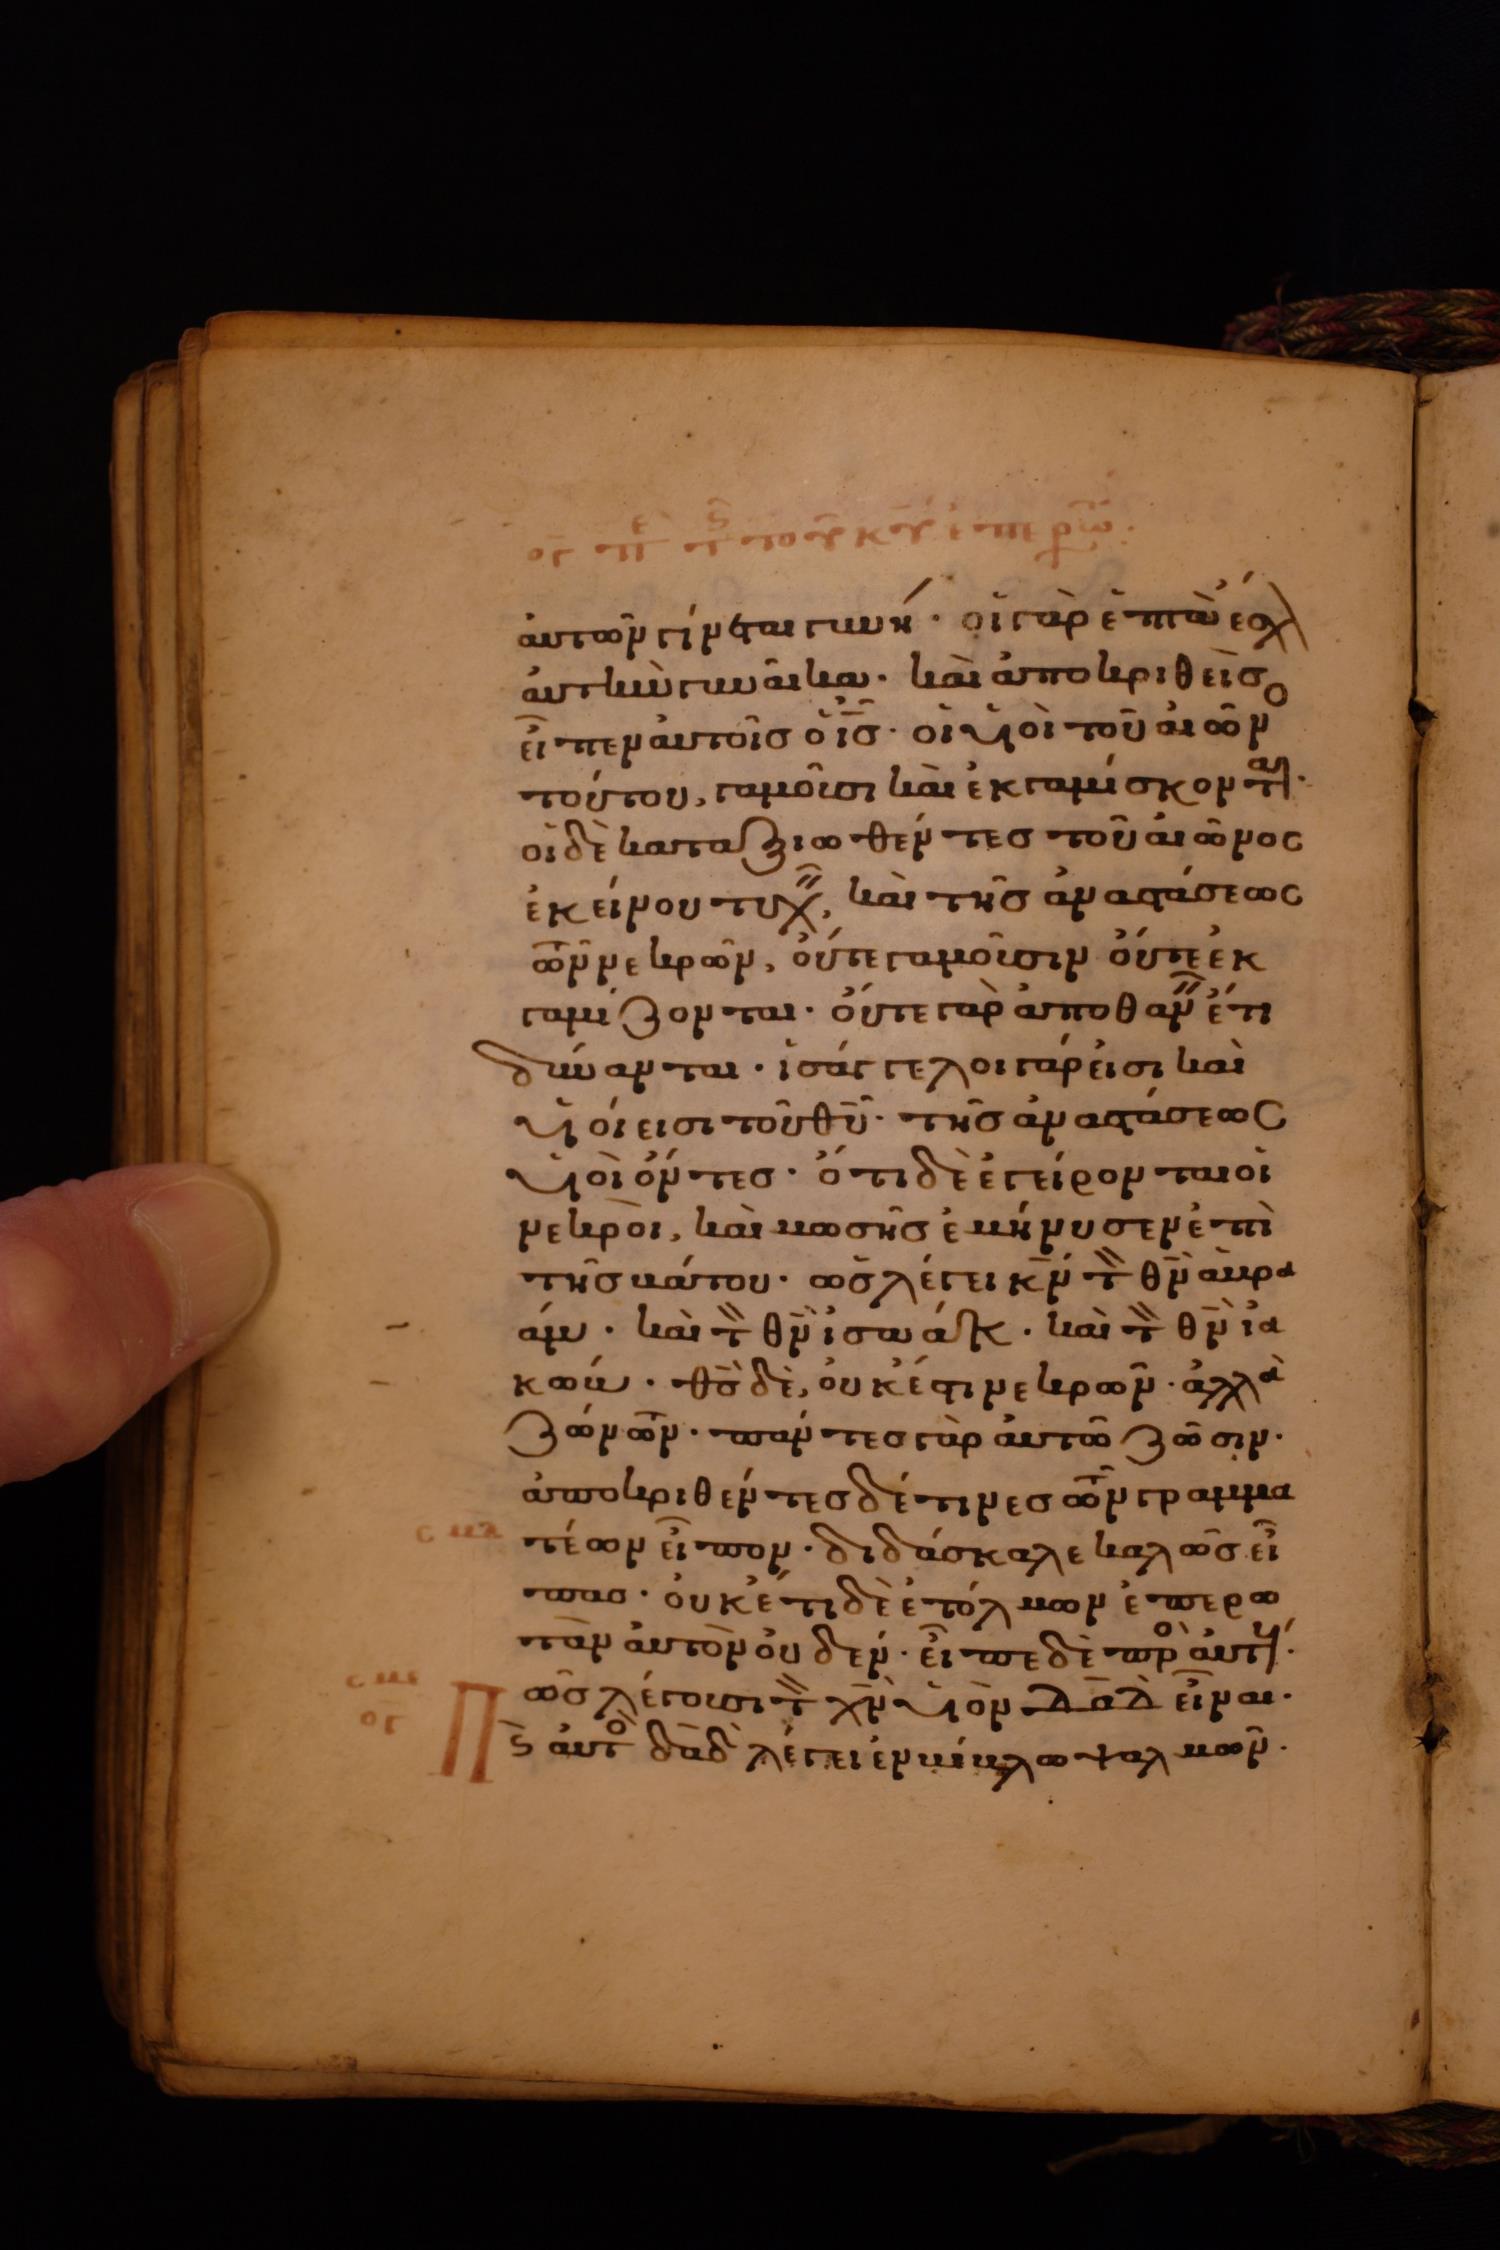 ἀυτῶν γίνεται γυνή· οἱ γὰρ ἑπτὰ ἔσχ
ἀυτὴν γυναῖκα· καὶ ἀποκριθεὶς ο
εἶπεν ἀυτοῖς ὁ ις· οἱ υἱοὶ τοῦ αἰῶν
τούτου, γαμοῦσι καὶ ἐκγαμίσκονται·
οἱ δὲ καταξιωθέντες τοῦ αἰῶνος
ἐκείνου τυχ, καὶ τῆς ἀναστάσεως
τῶν νεκρῶν, ὄυτε γαμοῦσιν ὄυτε ἐκ
γαμίζονται· ὄυτε γὰρ ἀποθαν ἔτι
δύνανται· ἰσάγγελοι γάρ εἰσι καὶ
υἱοί εισι τοῦ θυ· τῆς ἀναστάσεως
υἱοὶ ὄντες· ὅτι δὲ ἐγείρονται οἱ
νεκροὶ, καὶ μωσῆς ἐμήνυσεν ἐπὶ
τῆς βάτου· ὡς λέγει κν τὸν θν ἀβρα
άμ· καὶ τὸν θν ἰσαάκ· καὶ τὸν θν ἰα
κώβ· θς δὲ, ὀυκ ἔστι νεκρῶν· ἀλλὰ
ζώντων· πάντες γὰρ ἀυτῶ ζῶσιν·
ἀποκριθέντες δέ τινες τῶν γραμμα
τέων εἶπον· διδάσκαλε καλῶς εἶ
πας· ὀυκ ἔτι δὲ ἐτόλμων ἐπερω
τὰν ἀυτὸν ὀυδέν· εἶπε δὲ πρὸ ἀυτούς·
Πῶς λέγουσι τὸν χν υἱὸν δαδ εἶναι·
ϛ ἀυτὸ δαδ λέγει ἐν βίβλω ψαλμῶν·